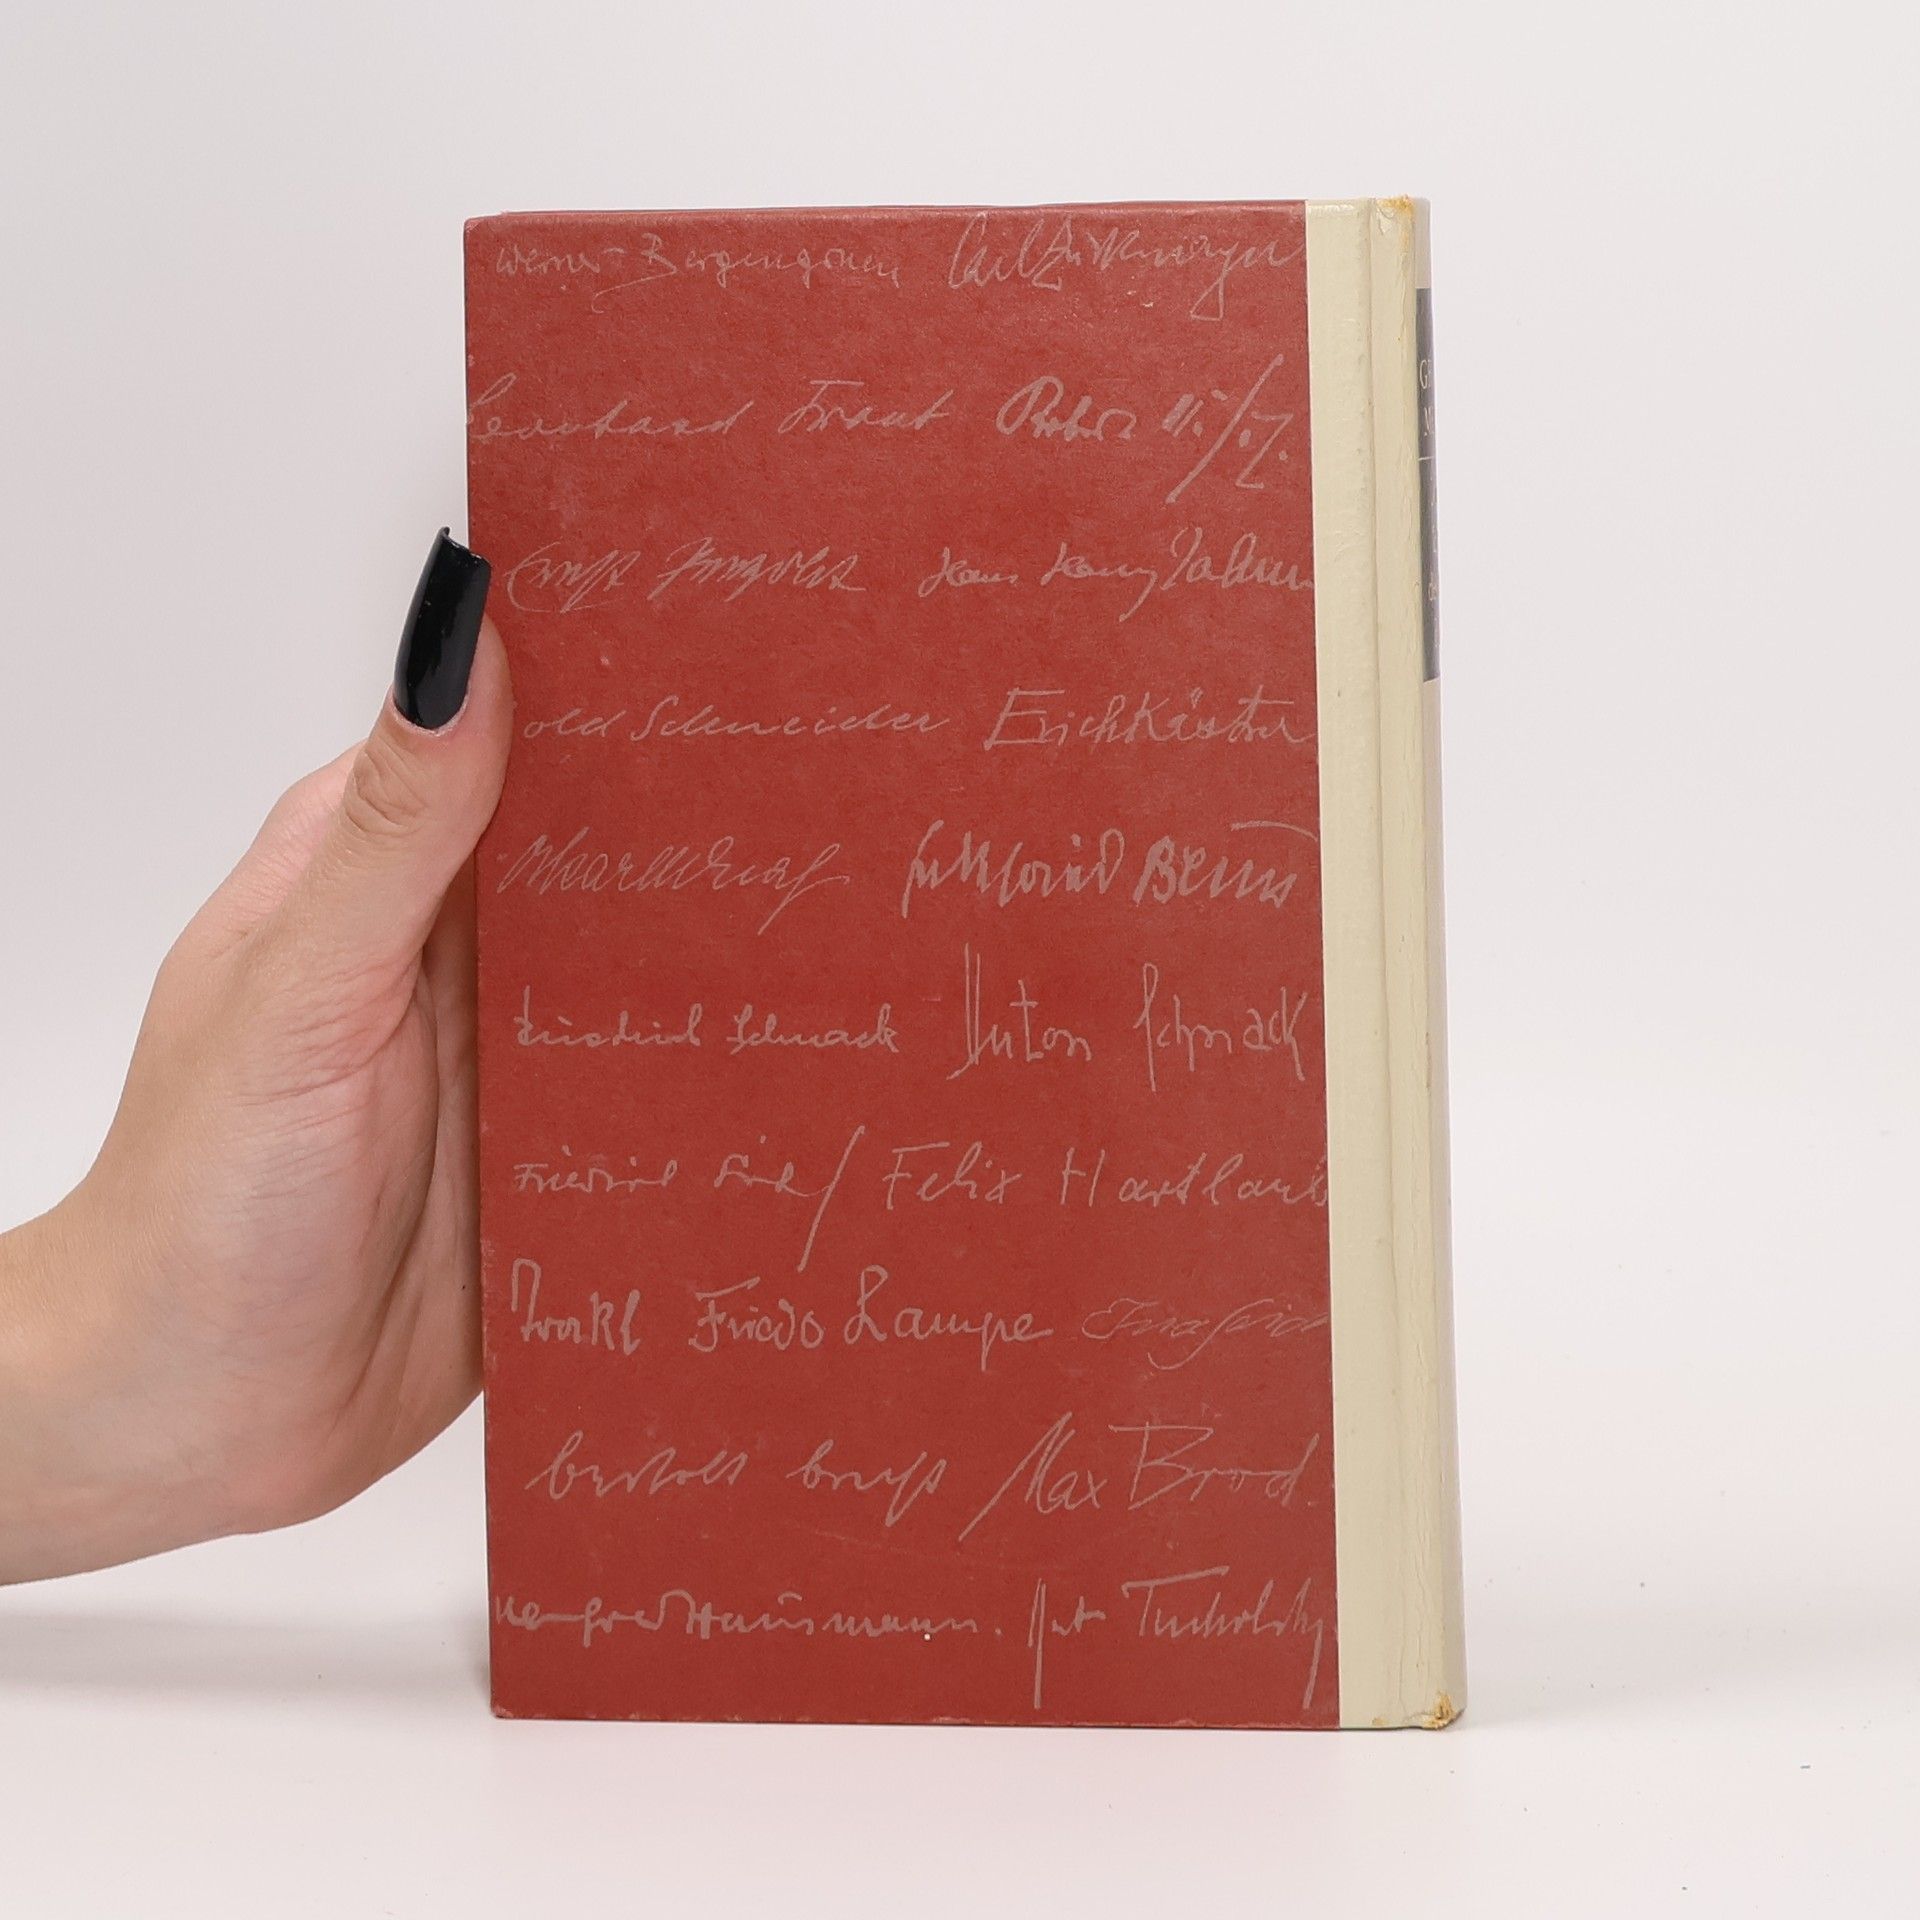 Werner Bergengruen Carl Zuckmayer
Leonhard Frank Robert
Ernst Penzoldt Hans Henny Jahnn
old Schneider Erich Kästner
Gottfried Benn
Friedrich Schnack Anton Schnack
Friedrich Felix Hartlaub
Trakl Friedo Lampe
bertolt brecht Max Brod.
Manfred Hausmann. Kurt Tucholsky